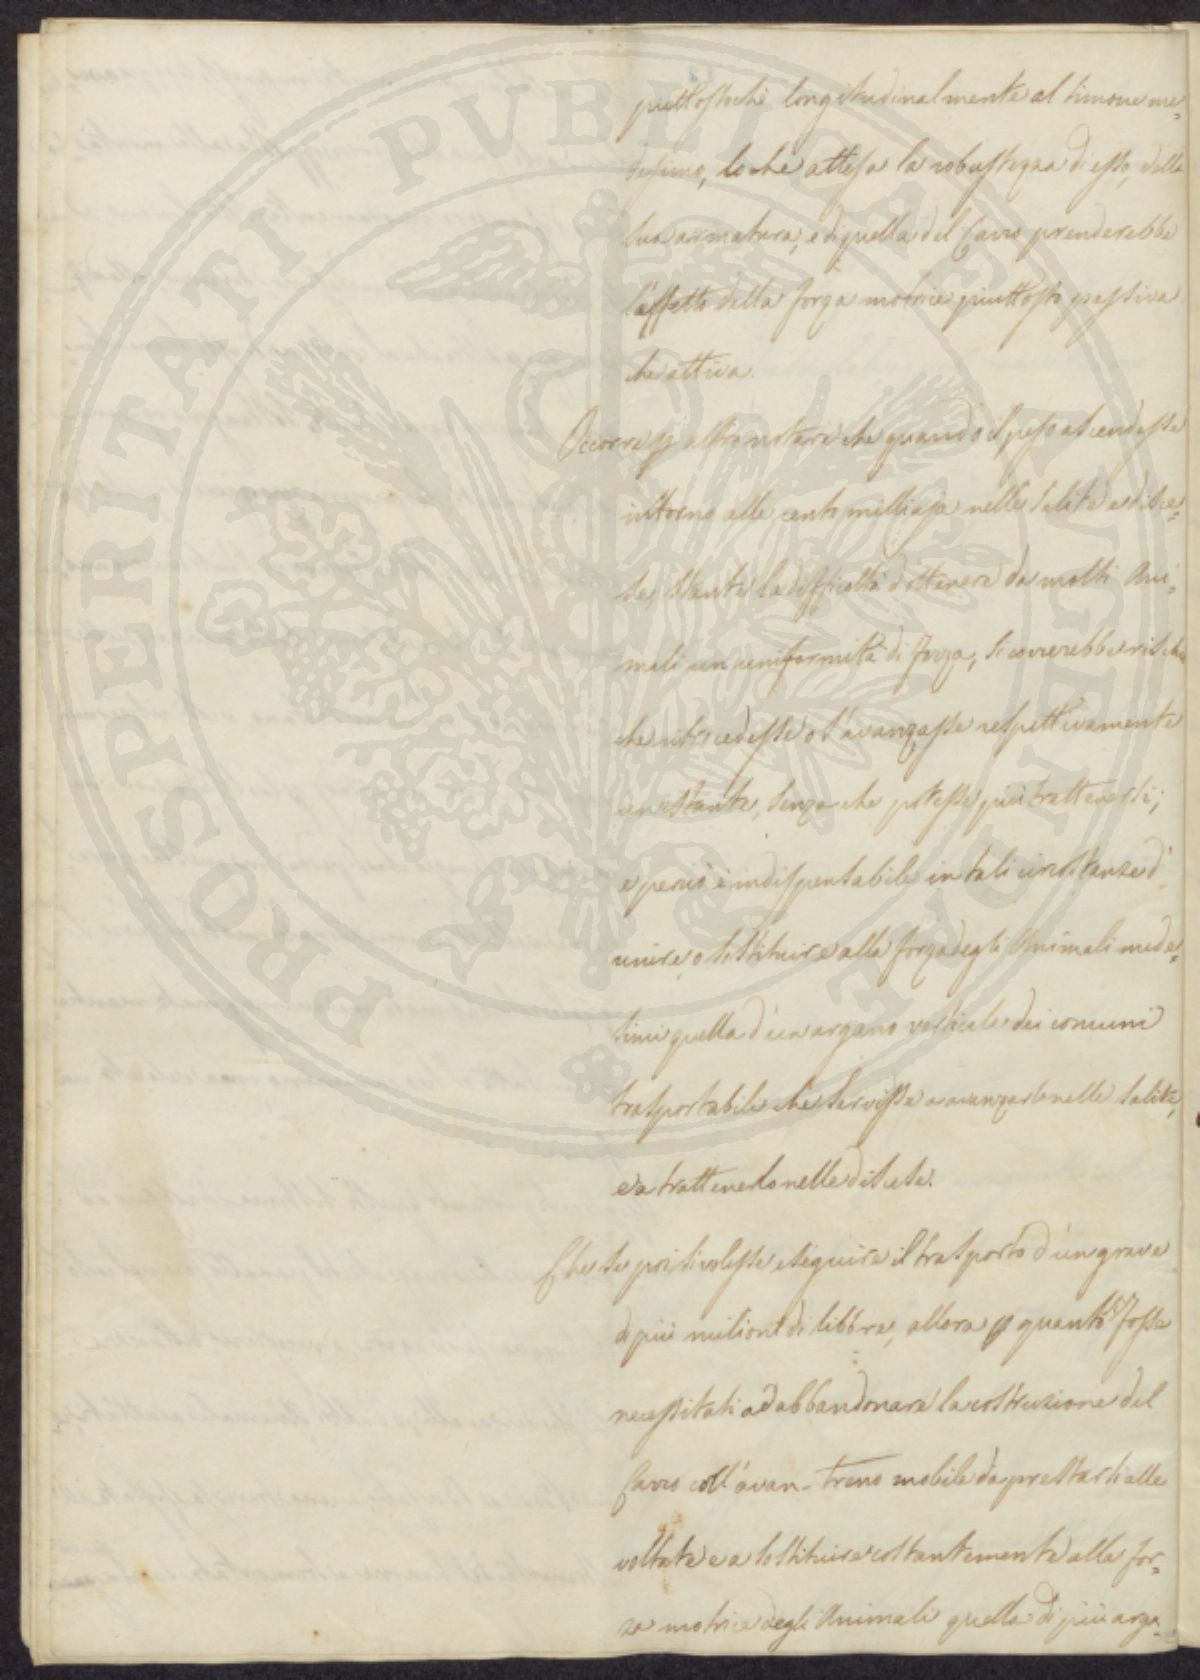 piuttostochè longitudinalmente al timone me=
desimo, lo che attesa la robustezza di esso, della
sua armatura, e di quella del Carro prenderebbe
l'effetto della forza motrice piuttosto passiva
che attiva.
Occorre p altro notare che quando il peso ascendesse
intorno alle cento milliaja nelle salite e disce=
se, stante la difficoltà d'ottenere da molti Ani=
mali un uniformità di forza, si correrebbe rischio
che retrocedesse o s'avanzasse respettivamente
un istante, senza che potesse più trattenersi;
e perciò è indispensabile in tali circostanze d'
unire o sostituire alla forza degli Animali mede=
simi quella d'un argano verticale dei comuni
trasportabile che servisse a avanzarlo nelle salite,
e a trattenerlo nelle discese.
Che se poi si volesse eseguire il trasporto d'un grave
di più milioni di libbre, allora p quanto si fosse
necessitati ad abbandonare la costruzione del
Carro coll'avan-treno mobile da prestarsi alle
voltate e a sostituire costantemente alla for=
za motrice degli Animali quella di più arga=
PROSPERITATI PUBLICAE AUGENDAE